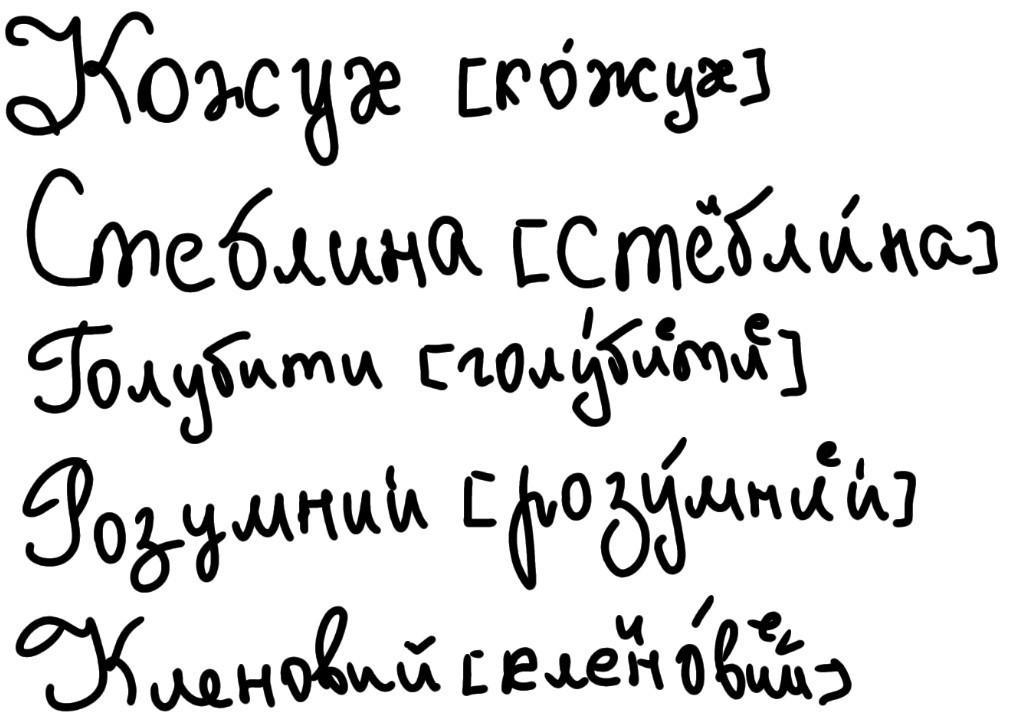 Кожух [ко́жух]
Стеблина [стеиблина́]
Голубити [голу́биетие]
Розумний [розу́мнией]
Кленовий [клеино́вией]